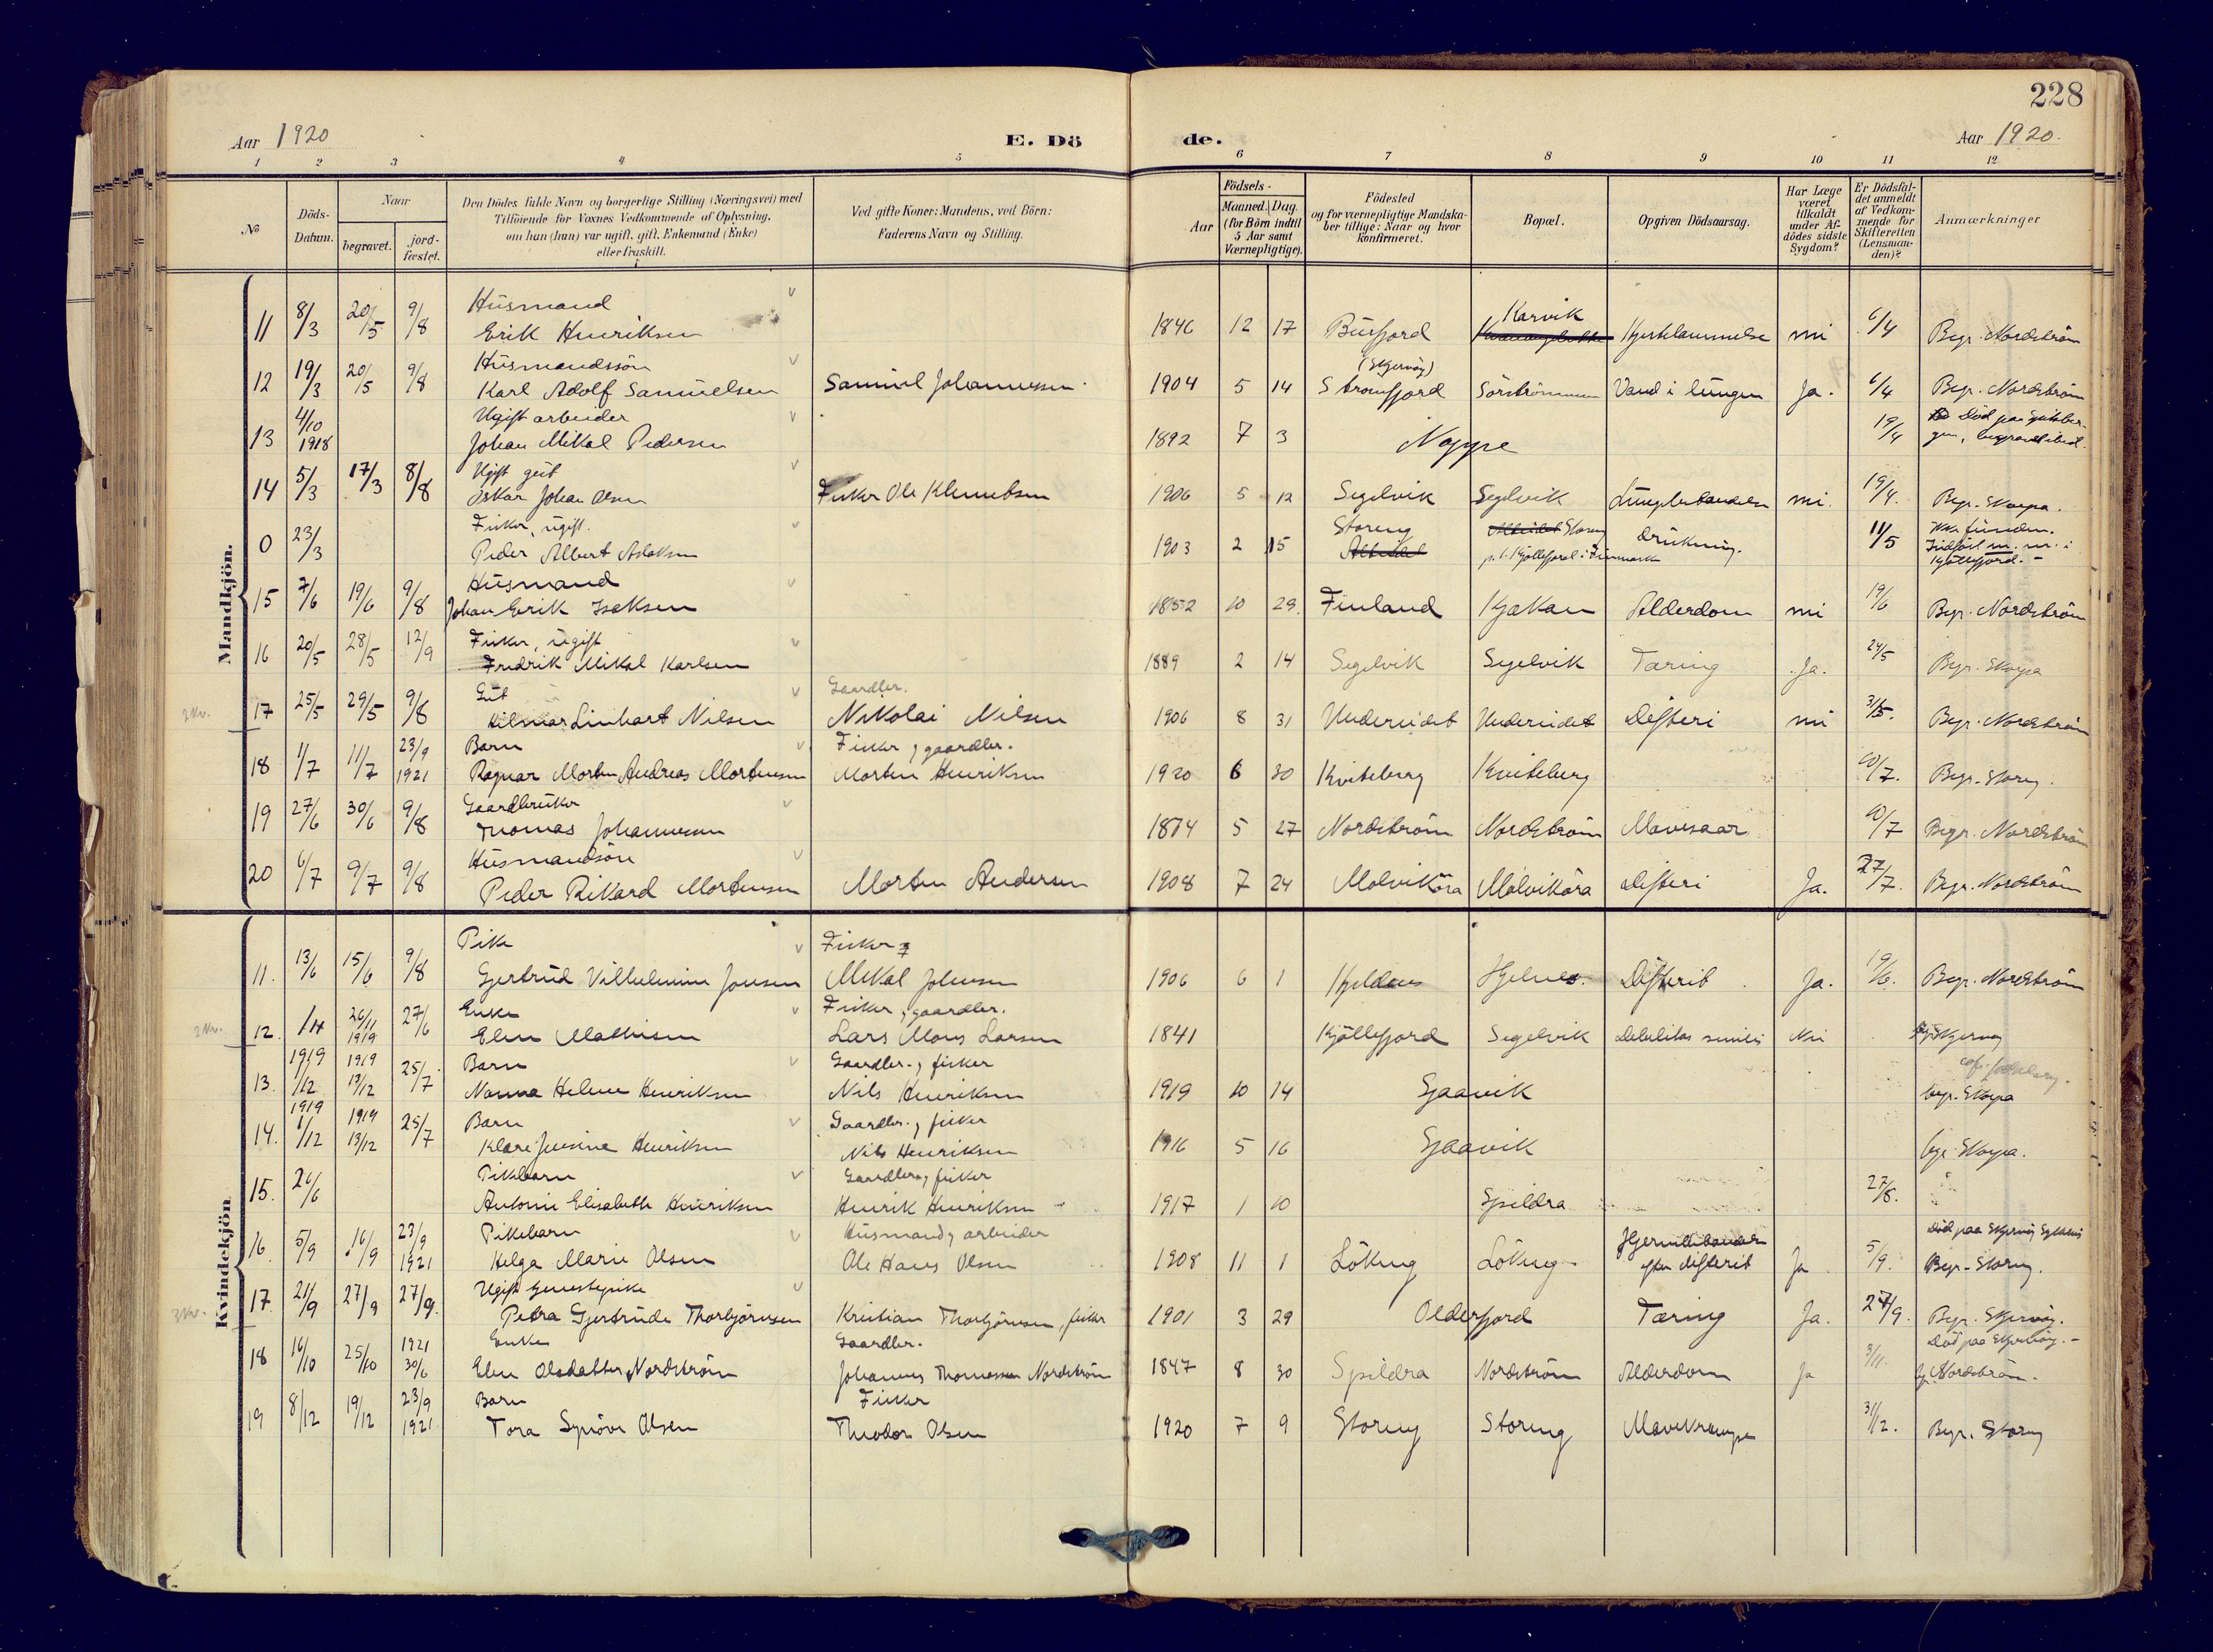 228
Aar 1920 E. Dö de. Aar 1920.
1 2 3 4 5 6 7 8 9 10 11 12
№ Döds-Datum. Naar begravet. jord-fæstet. Den Dödes fulde Navn og borgerlige Stilling (Næringsvei) med Tilföiende for Voxnes Vedkommende af Oplysning, om han (hun) var ugift, gift, Enkemand (Enke) eller fraskilt. Ved gifte Koner: Mandens, ved Börn: Faderens Navn og Stilling. Aar Födsels- Maaned. Dag. (for Börn indtil 5 Aar samt Værnepligtige). Födested og for værnepligtige Mandskaber tillige: Naar og hvor konfirmeret. Bopæl. Opgiven Dödsaarsag. Har Læge været tilkaldt under Afdödes sidste Sygdom? Er Dödsfaldet anmeldt af Vedkommende for Skifteretten (Lensmanden)? Anmærkninger
Mandkjön.
Husmand Karvik
11 8/3 20/5 9/8 Erik Henriksen 1846 12 17 Burfjord Hjertelammelse nei 6/4 Begr. Nordström
Husmandssön (Skjervöy)
12 19/3 20/5 9/8 Karl Adolf Samuelsen Samuel Johannessen 1904 5 14 Straumfjord Sörströmmen Vand i lungen Ja. 6/4 Begr. Nordström
4/10 Ugift arbeider Död paa Spitsber-
13 1918 Johan Mikal Pedersen 1892 7 3 Noppe 19/4 gen, begravet ibid.
Ugift gut
14 5/3 17/3 8/8 Oskar Johan Olsen Fisker Ole Klemetsen 1906 5 12 Segelvik Segelvik Lungebetændelse nei. 19/4. Begr. Skorpa.
Fisker, ugift. Storeng Storeng Ikke funden.
0 23/3 Peder Albert Aslaksen 1903 2 15 p.t. Kjöllefjord i Finmark Drukning. 11/5 Indfört m. nr. i Kjöllefjord. -
Husmand
15 7/6 19/6 9/8 Johan Erik Isaksen 1852 10 29. Finland Kjækan Alderdom nei 19/6 Begr. Nordström
Fisker, ugift
16 20/5 28/5 12/9 Fredrik Mikal Karlsen 1889 2 14 Segelvik Segelvik Tæring Ja. 24/5 Begr. Skorpa
Gut Gaardbr.
17 25/5 29/5 9/8 Hilmar Linhart Nilsen Nikolai Nilsen 1906 8 31 Undereidet Undereidet Difteri nei 31/5. Begr. Nordström
Barn Fisker, gaardbr.
18 1/7 11/7 23/9 1921 Ragnar Morten Andreas Mortensen Morten Henriksen 1920 6 30 Kviteberg Kviteberg 10/7. Begr. Storeng.
Gaardbruker
19 27/6 30/6 9/8 Thomas Johannessen 1874 5 27 Nordström Nordström Mavesaar 10/7 Begr. Nordström
Husmandsön
20 6/7 9/7 9/8 Peder Rikard Mortensen Morten Andersen 1908 7 24 Molviköra Molviköra Difteri Ja. 27/7. Begr. Nordström
Kvindekjön.
Pike Fisker
11. 13/6 15/6 9/8 Gjertrud Vilhelmine Jensen Mikal Johnsen 1906 6 1 Hjelnes. Difterit Ja. 19/6. Begr. Nordström
Enke Fisker, gaardbr.
12. 1/4 26/11 1919 27/6 Elen Mathisen Lars Mons Larsen 1841 Kjöllefjord Segelvik Debilitas senilis Nei
Barn Gaardbr., fisker
13 1919 1/12 1919 13/12 25/7 Nanna Helene Henriksen Nils Henriksen 1919 10 14 Spaavik begr. Skorpa
Barn Gaardbr., fisker
14. 1919 1/12 1919 13/12 25/7 Klara Jensine Henriksen Nils Henriksen 1916 5 16 Spaavik begr. Skorpa.
Pikebarn Gaardbr., fisker
15. 26/6 Antonie Elisabeth Henriksen Henrik Henriksen 1917 1 10 Spildra 27/8.
Pikebarn Husmand, arbeider Død paa Skjervöy Sykehus
16. 5/9 16/9 23/9 1921 Helga Marie Olsen Ole Hans Olsen 1908 11 1 Lökeng Lökeng Hjernebetændelse efter difterit Ja 5/9. Begr. Storeng.
Ugift tjenestepike
17. 21/9 27/9 27/9. Petra Gjertrude Thorbjörnsen Kristian Thorbjörnsen, fisker 1901 3 29 Olderfjord Tæring Ja. 27/9. Begr. Skjervöy.
Enke Gaardbr. Död paa Skjervöy. -
18 16/10 25/10 1921 30/6 Elen Olsdatter Nordström Johannes Thomassen Nordström 1847 8 30 Spildra Nordström Alderdom Ja 3/11. Nordström.
Barn Fisker
19 8/12 19/12 23/9 1921 Tora Synöve Olsen Theodor Olsen 1920 7 9 Storeng Storeng Mavekrampe 31/12. Begr. Storeng